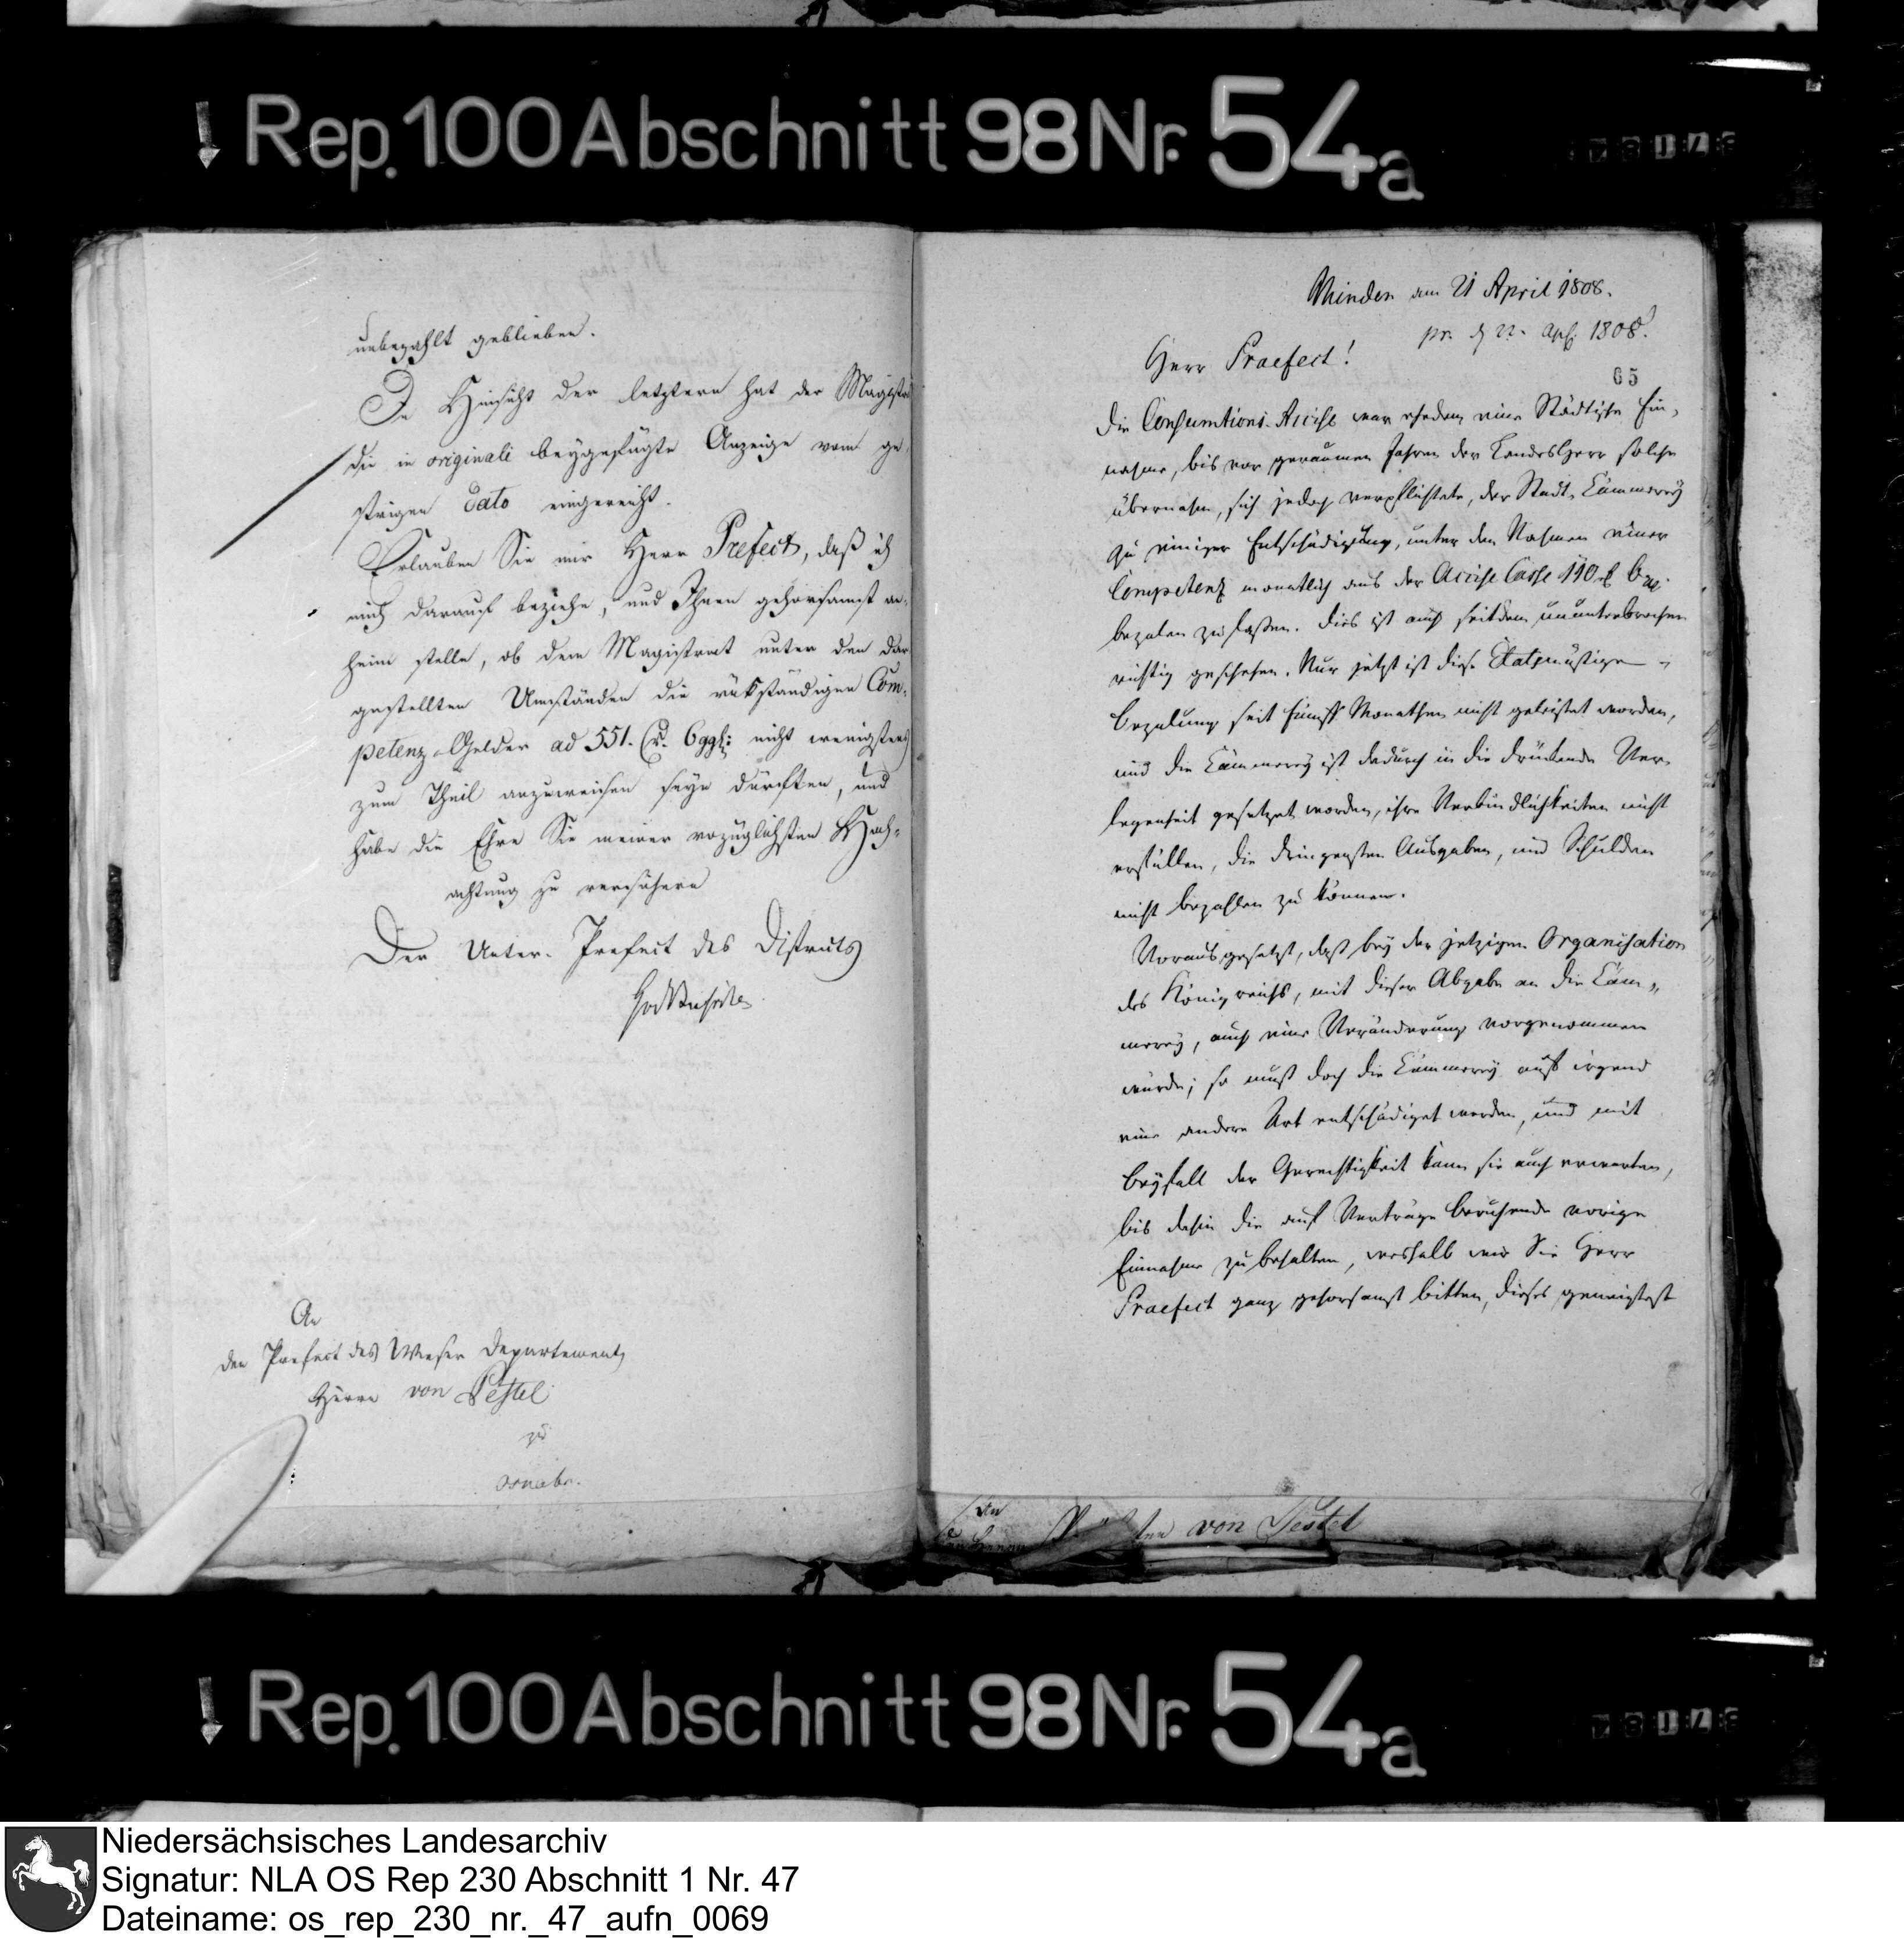 Rep. 100 Abschnitt 98 Nr. 54a
unbezahlt geblieben.
In Hinsicht der letztern hat der Magistrat
die in originali beygefügte Anzeige vom ge-
strigen Dato eingereicht.
Erlauben Sie mir Herr Prefect, daß ich
mich darauf beziehe, und Ihnen gehorsamst an-
heim stelle, ob dem Magistrat unter den dar
gestellten Umständen die rükständigen Com-
petenz Gelder ad 551. r. 6 ggl: nicht wenigstens
zum Theil anzuweisen seyn dürften, und
habe die Ehre Sie meiner vozüglichsten Hoch-
achtung zu versichern
Der Unter-Prefect des Districts
An
den Prefect des Weser Departements
Herrn von Pestel
zu
Osnabr.
Minden am 21 April 1808.
pr. d 22. Apr. 1808.
Herr Praefect!
65
Die Consumtions-Accise war ehedem eine Städtische Ein-
nahme, bis vor geraumen Jahren der Landesherr solche
übernahm, sich jedoch verpflichtete, der Stadt-Cämmerey
zu einiger Entschädigung, unter den Nahmen einer
Competenz monatlich aus der Accise Casse 110
bezalen zu laßen. Dies ist auch seitdem ununterbrochen
richtig geschehen. Nur jetzt ist diese Etatsmäßige
Bezalung seit fünff Monathen nicht geleistet worden,
und die Cämmerey ist dadurch in die drückende Ver-
legenheit gesetzet worden, ihre Verbindlichkeiten nicht
erfüllen, die dringensten Ausgaben, und Schulden
nicht bezahlen zu können.
Vorausgesetzt, daß bey der jetzigen Organisation
des Königreichs, mit dieser Abgabe an die Cäm-
merey, auch eine Veränderung vorgenommen
würde; so muß doch die Cämmerey auf irgend
eine andere Art entschädiget werden, und mit
Beyfall der Gerechtigkeit kann sie auch erwarten,
bis dahin die auf Verträge beruhende vorige
Einnahme zu behalten, weshalb wir Sie Herr
Praefect ganz gehorsamst bitten, dieses geneigtest
An
von Pestel
Rep. 100 Abschnitt 98 Nr. 54a
Niedersächsisches Landesarchiv
Signatur: NLA OS Rep 230 Abschnitt 1 Nr. 47
Dateiname: os_rep_230_nr._47_aufn_0069